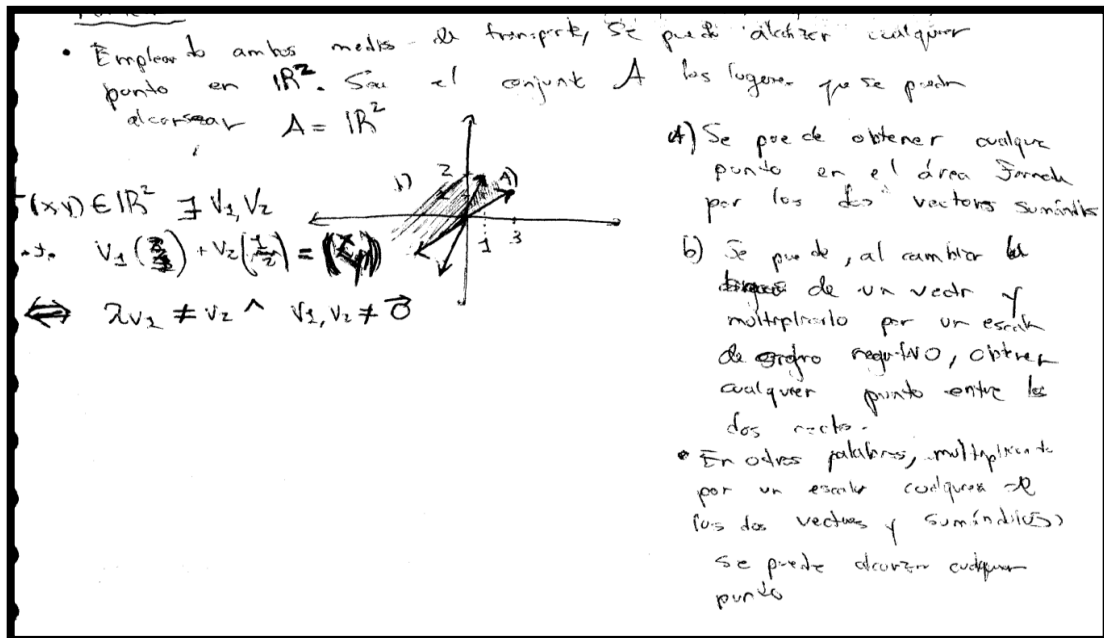 • Empleando ambos medios de transporte, se puede alcanzar cualquier
punto en IR². Sea el conjunto A los lugares que se puedan
alcanzar A = IR²
(x y) ∈ IR² ∃ V1, V2
s.t. V1 + V2 =
⟺ λV1 ≠ V2 ^ V1, V2 ≠ 0⃗
b) 2 a)
1 3
a) Se puede obtener cualquier
punto en el área formada
por los dos vectores sumándolos
b) Se puede, al cambiar
de un vector y
multiplicarlo por un escalar
de negativo, obtener
cualquier punto entre los
dos
• En otras palabras, multiplicando
por un escalar cualquiera
los dos vectores y sumándolos
se puede alcanzar cualquier
punto